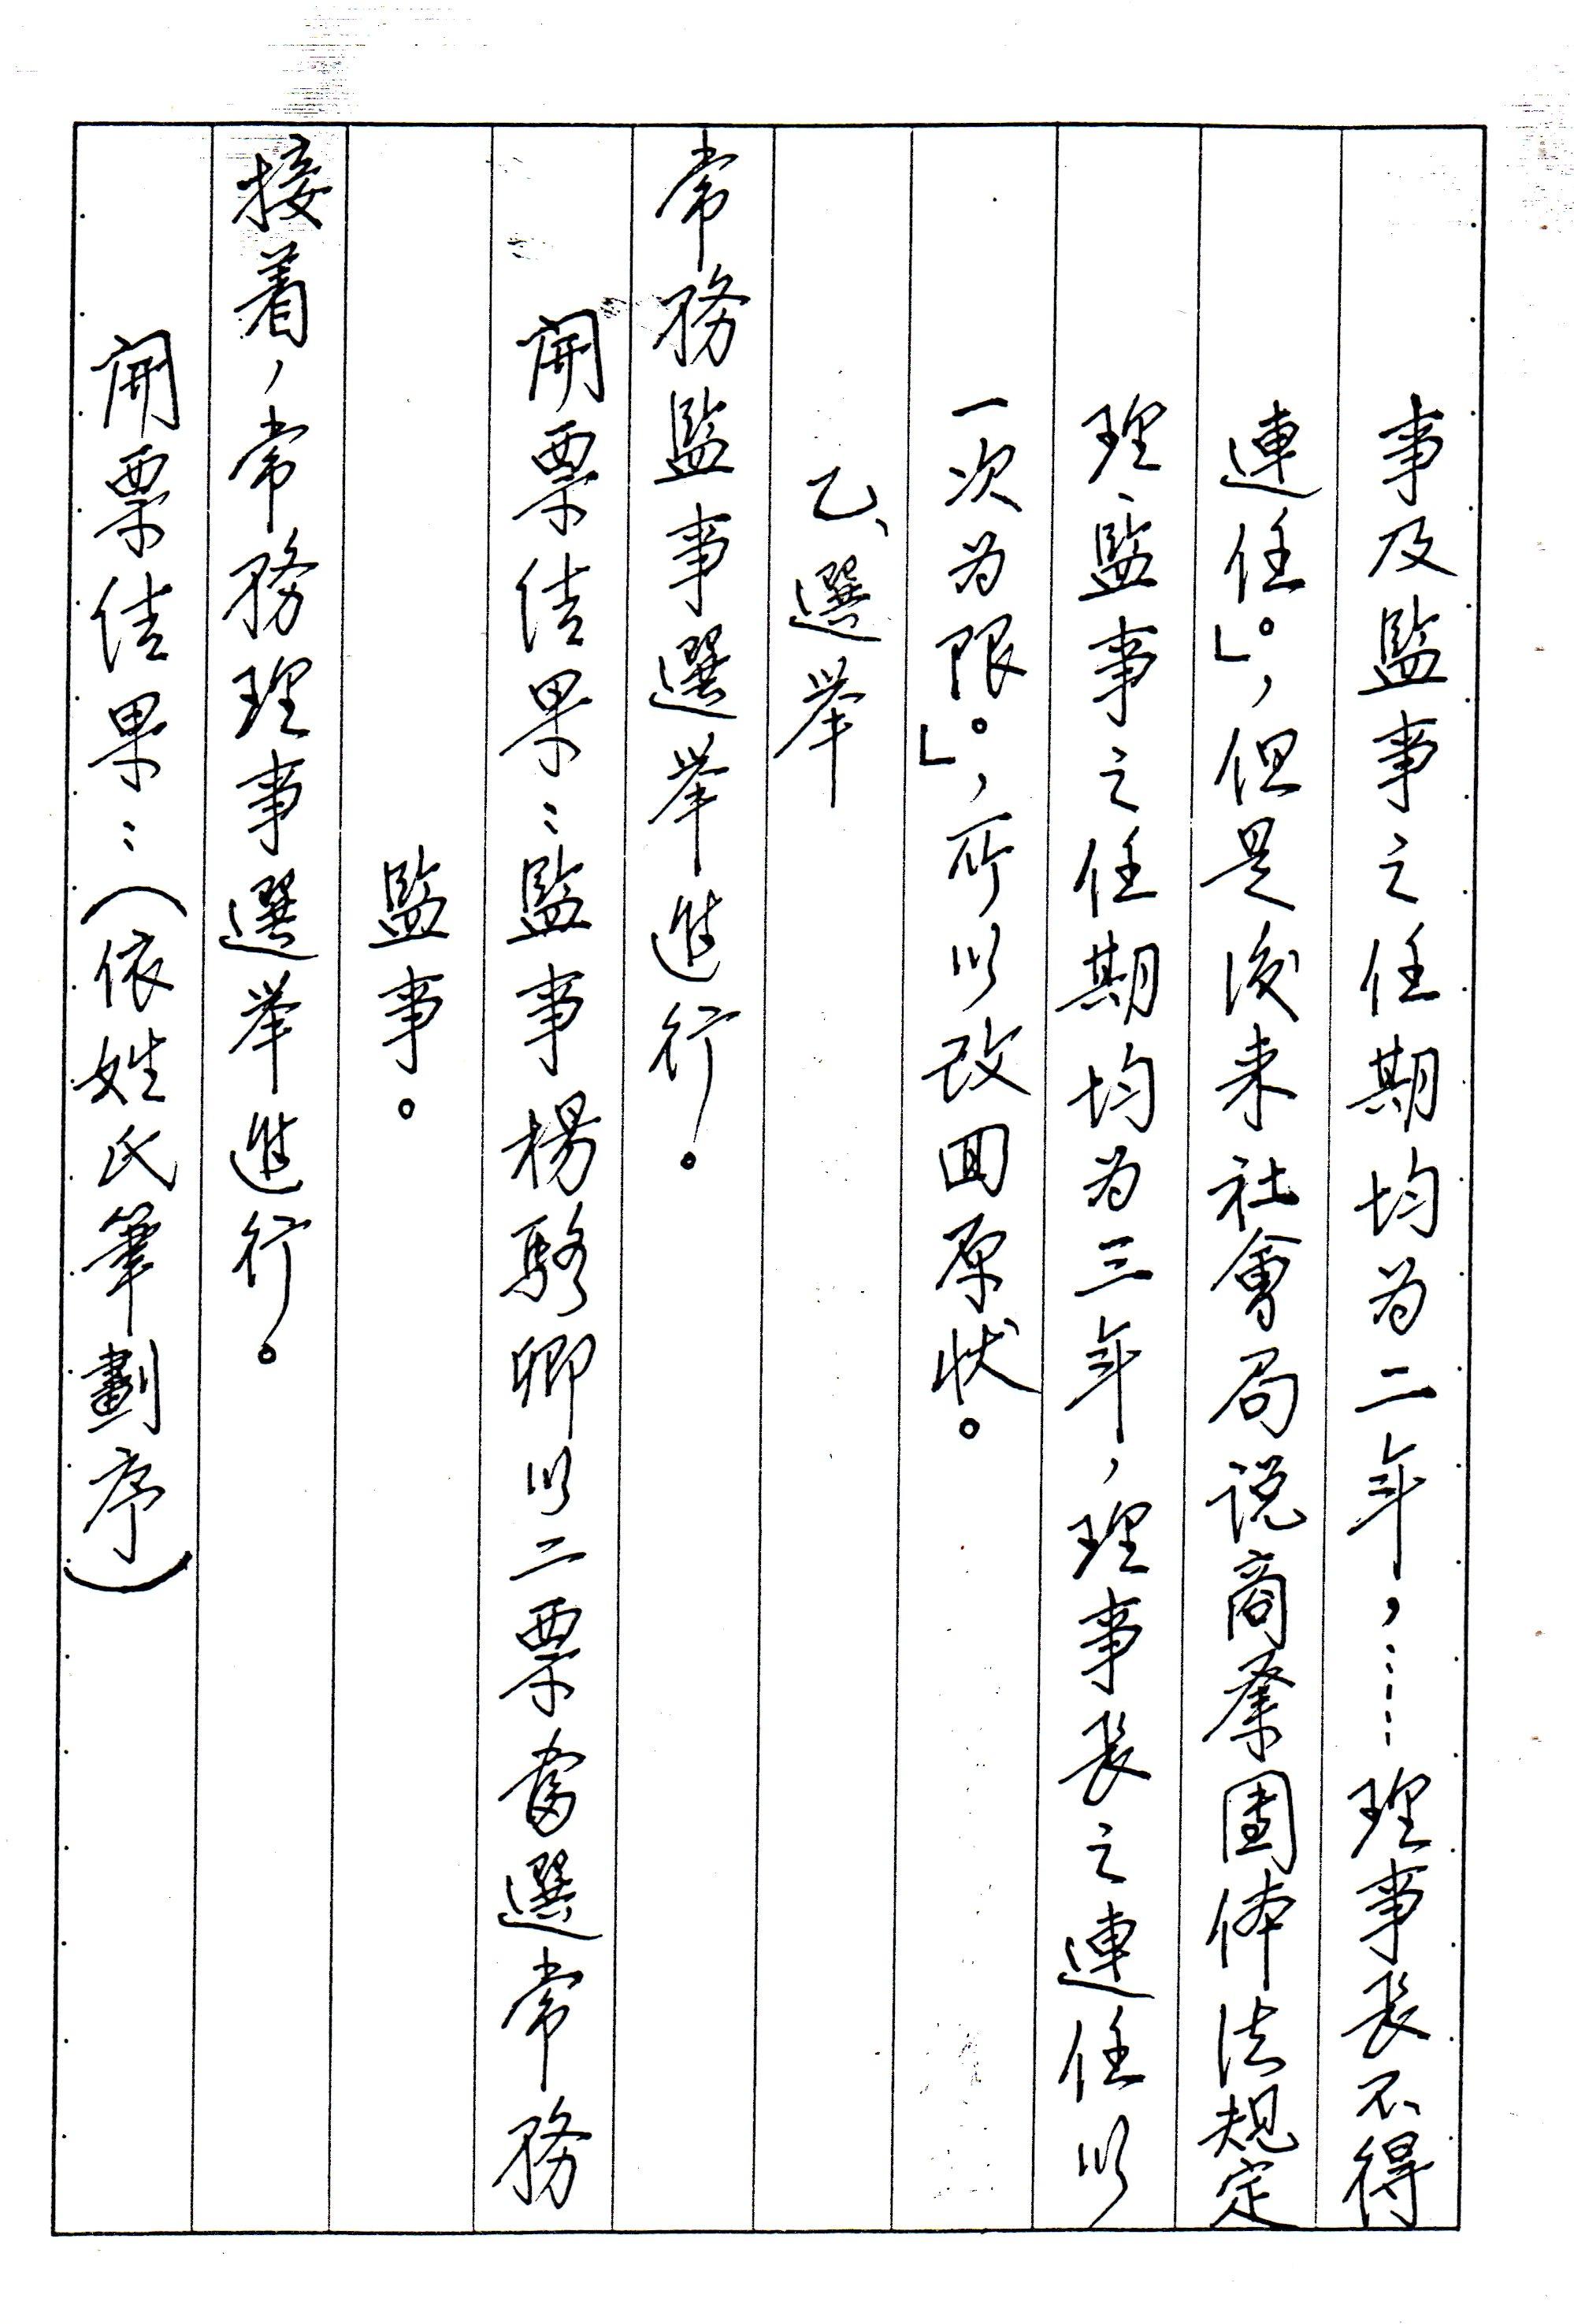 事及監事之任期均為二年，……理事長不得
連任。」，但是後來社會局說商業團体法規定
理、監事之任期均為三年，理事長之連任以
一次為限。」，所以改回原狀。
乙、選举
常務監事選举進行。
開票結果：監事楊駱卿以二票當選常務
監事。
接着，常務理事選举進行。
開票結果：（依姓氏筆劃序）